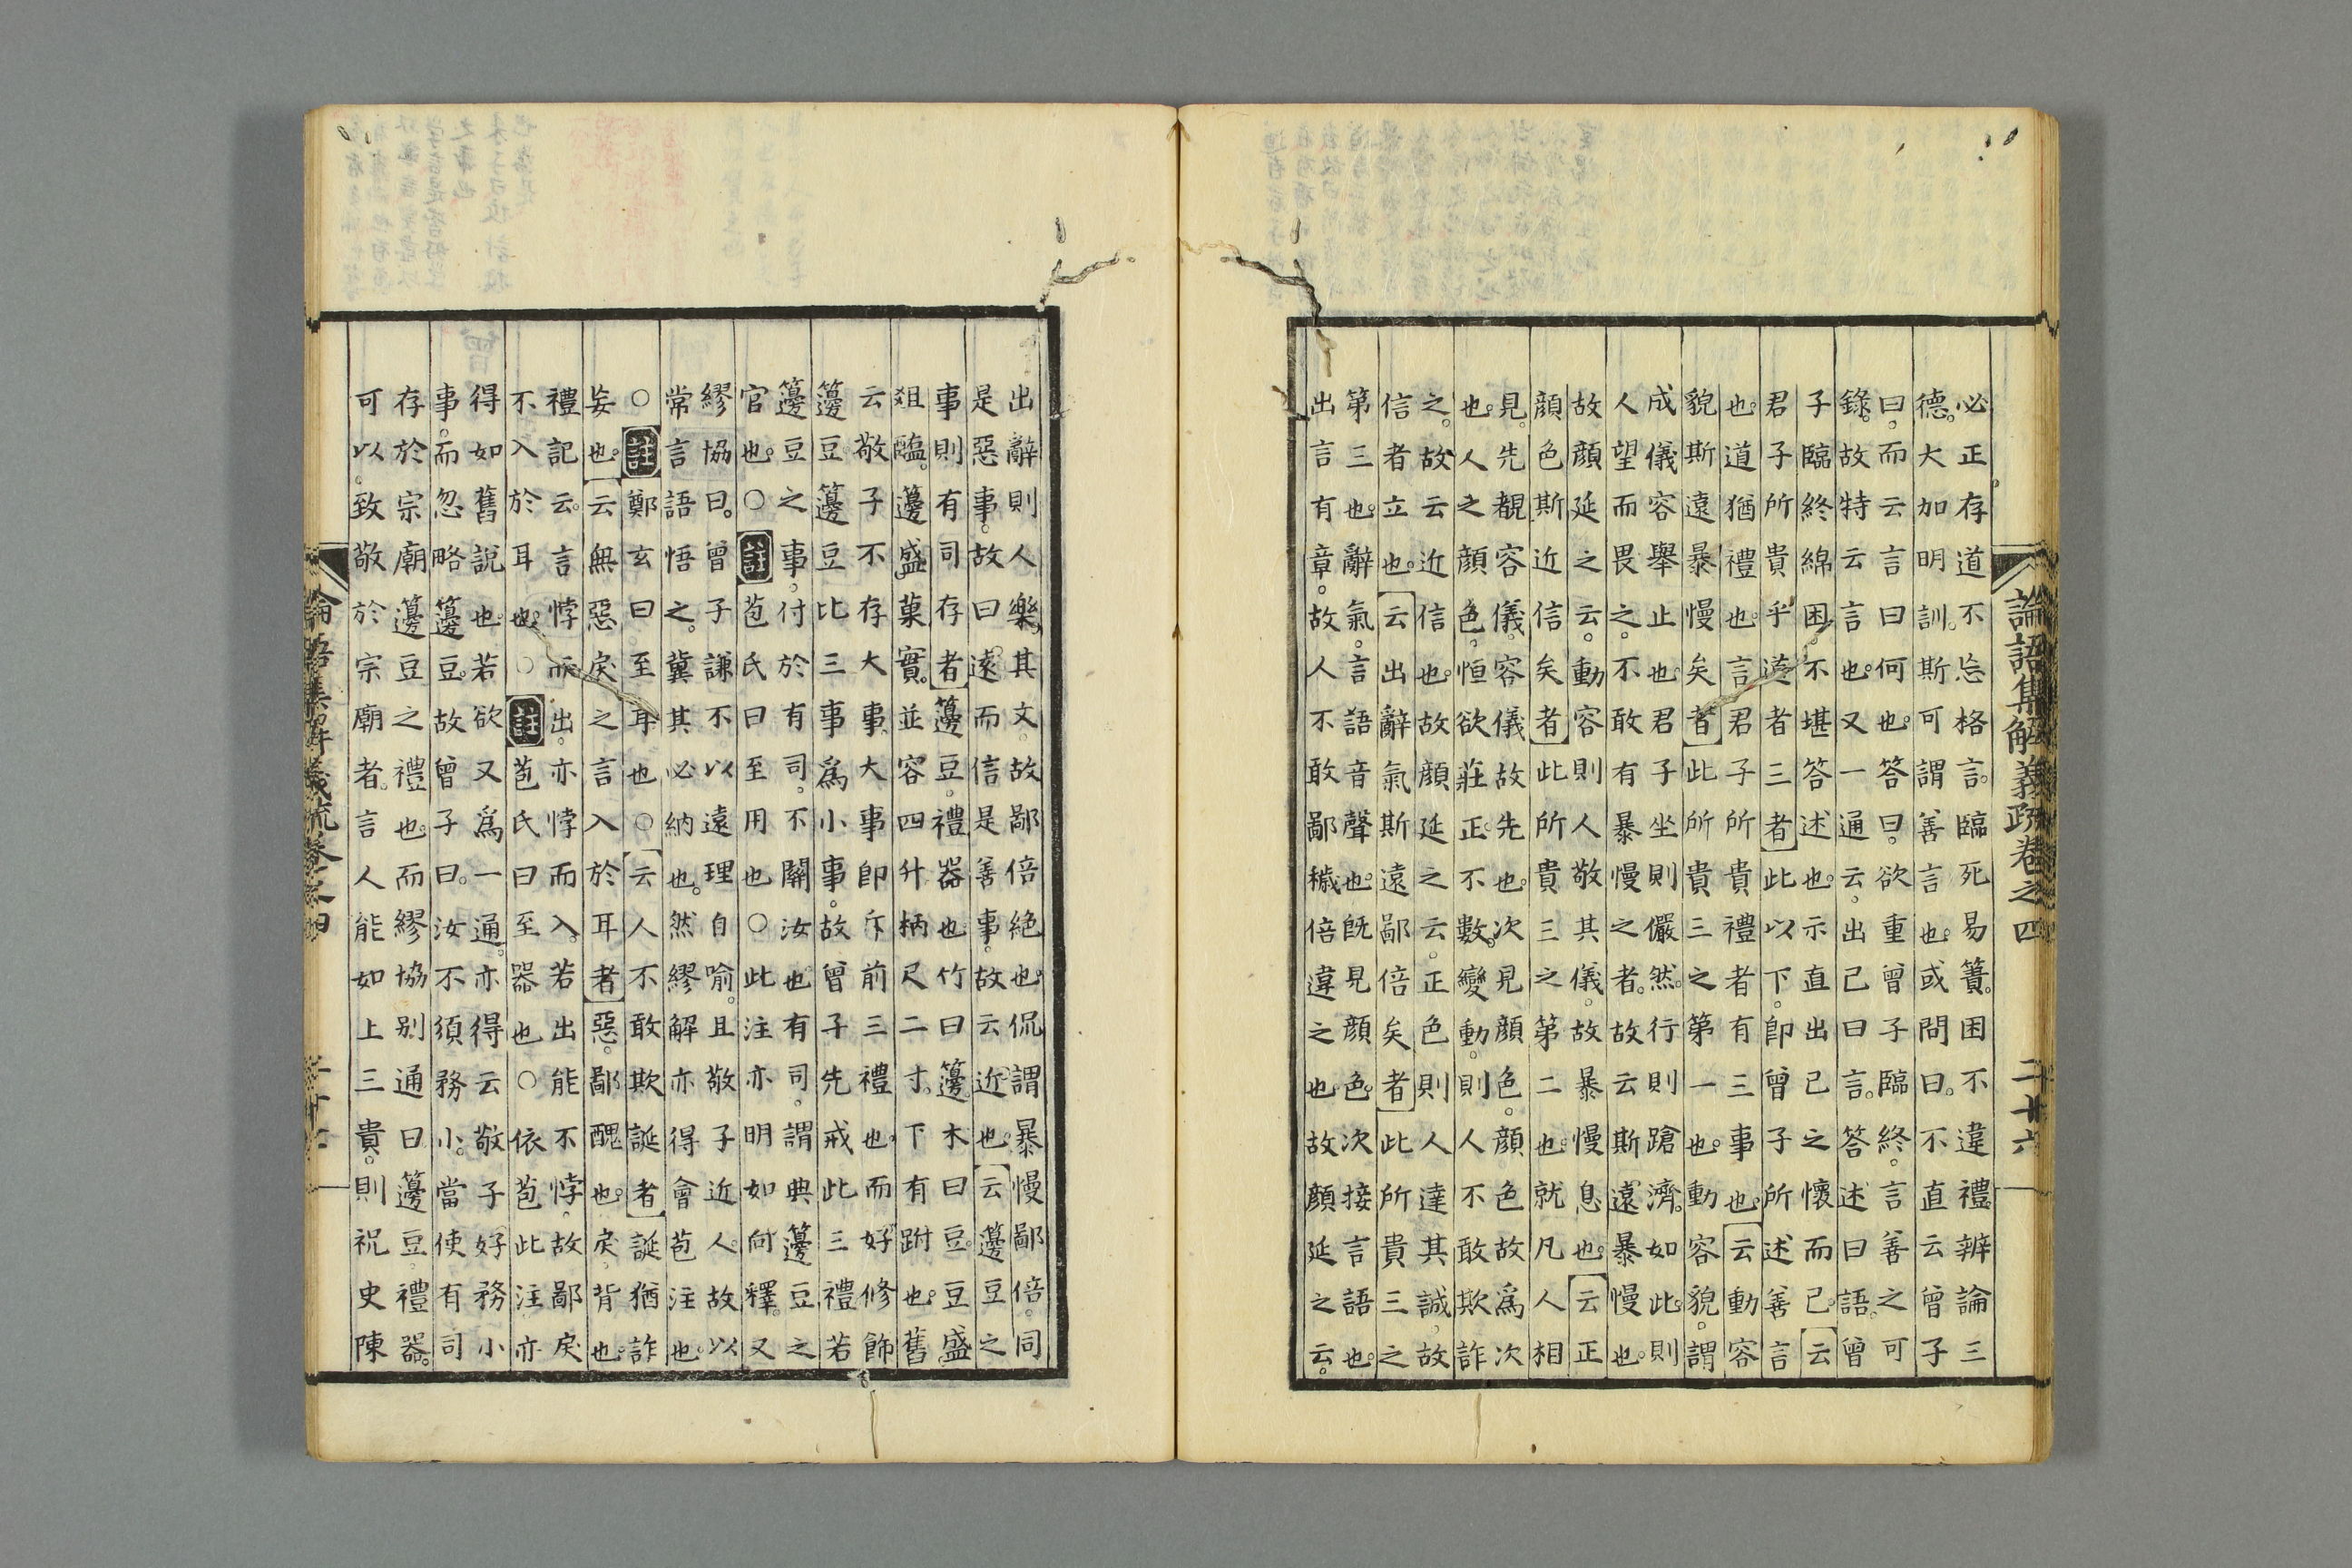 論語集解義疏卷之四 二十六
必正存道不忘格言。臨死易簀。困不違禮。辨論三
德。大加明訓。斯可謂善言也。或問曰。不直云曾子
曰。而云言曰何也。答曰。欲重曾子臨終。言善之可
錄。故特云言也。又一通云。出己曰言。答述曰語。曾
子臨終綿困。不堪答述也。示直出己之懷而已。[云
君子所貴乎道者三者]此以下。即曾子所述善言
也。道猶禮也。言君子所貴禮者有三事也。[云動容
貌斯遠暴慢矣者]此所貴三之第一也。動容貌。謂
成儀容舉止也。君子坐則儼然。行則蹌濟。如此則
人望而畏之。不敢有暴慢之者。故云斯遠暴慢也。
故顏延之云。動容則人敬其儀。故暴慢息也。[云正
顏色斯近信矣者]此所貴三之第二也。就凡人相
見。先覩容儀。容儀故先也。次見顏色。顏色故爲次
也。人之顏色。恒欲莊正。不數變動。則人不敢欺詐
之。故云近信也。故顏延之云。正色則人達其誠。故
信者立也。[云出辭氣斯遠鄙倍矣者]此所貴三之
第三也。辭氣。言語音聲也。既見顏色。次接言語也。
出言有章。故人不敢鄙穢倍違之也。故顏延之云。
出辭則人樂其文。故鄙倍絕也。侃謂暴慢鄙倍。同
是惡事。故曰遠。而信是善事。故云近也。[云籩豆之
事則有司存者]籩豆。禮器也。竹曰籩。木曰豆。豆盛
俎臨。籩盛菓實。並容四升。柄尺二寸。下有跗也。舊
云敬子不存大事。大事即斥前三禮也。而好修飾
籩豆。籩豆比三事爲小事。故曾子先戒此三禮若
籩豆之事。付於有司。不關汝也。有司。謂典籩豆之
官也。○註苞氏曰至用也○此注亦明如向釋。又
繆協曰。曾子謙不以遠理自喻。且敬子近人。故以
常言語悟之。冀其必納也。然繆解亦得會苞注也。
○註鄭玄曰至耳也○[云人不敢欺誕者]誕猶詐
妄也。[云無惡戾之言入於耳者]惡。鄙醜也。戾。背也。
禮記云。言悖而出。亦悖而入。若出能不悖。故鄙戾
不入於耳也。○註苞氏曰至器也○依苞此注亦
得如舊說也。若欲又爲一通。亦得云敬子好務小
事。而忽略籩豆。故曾子曰。汝不須務小。當使有司
存於宗廟籩豆之禮也。而繆協別通曰籩豆禮器。
可以致敬於宗廟者。言人能如上三貴。則祝史陳
論語集解義疏卷之四